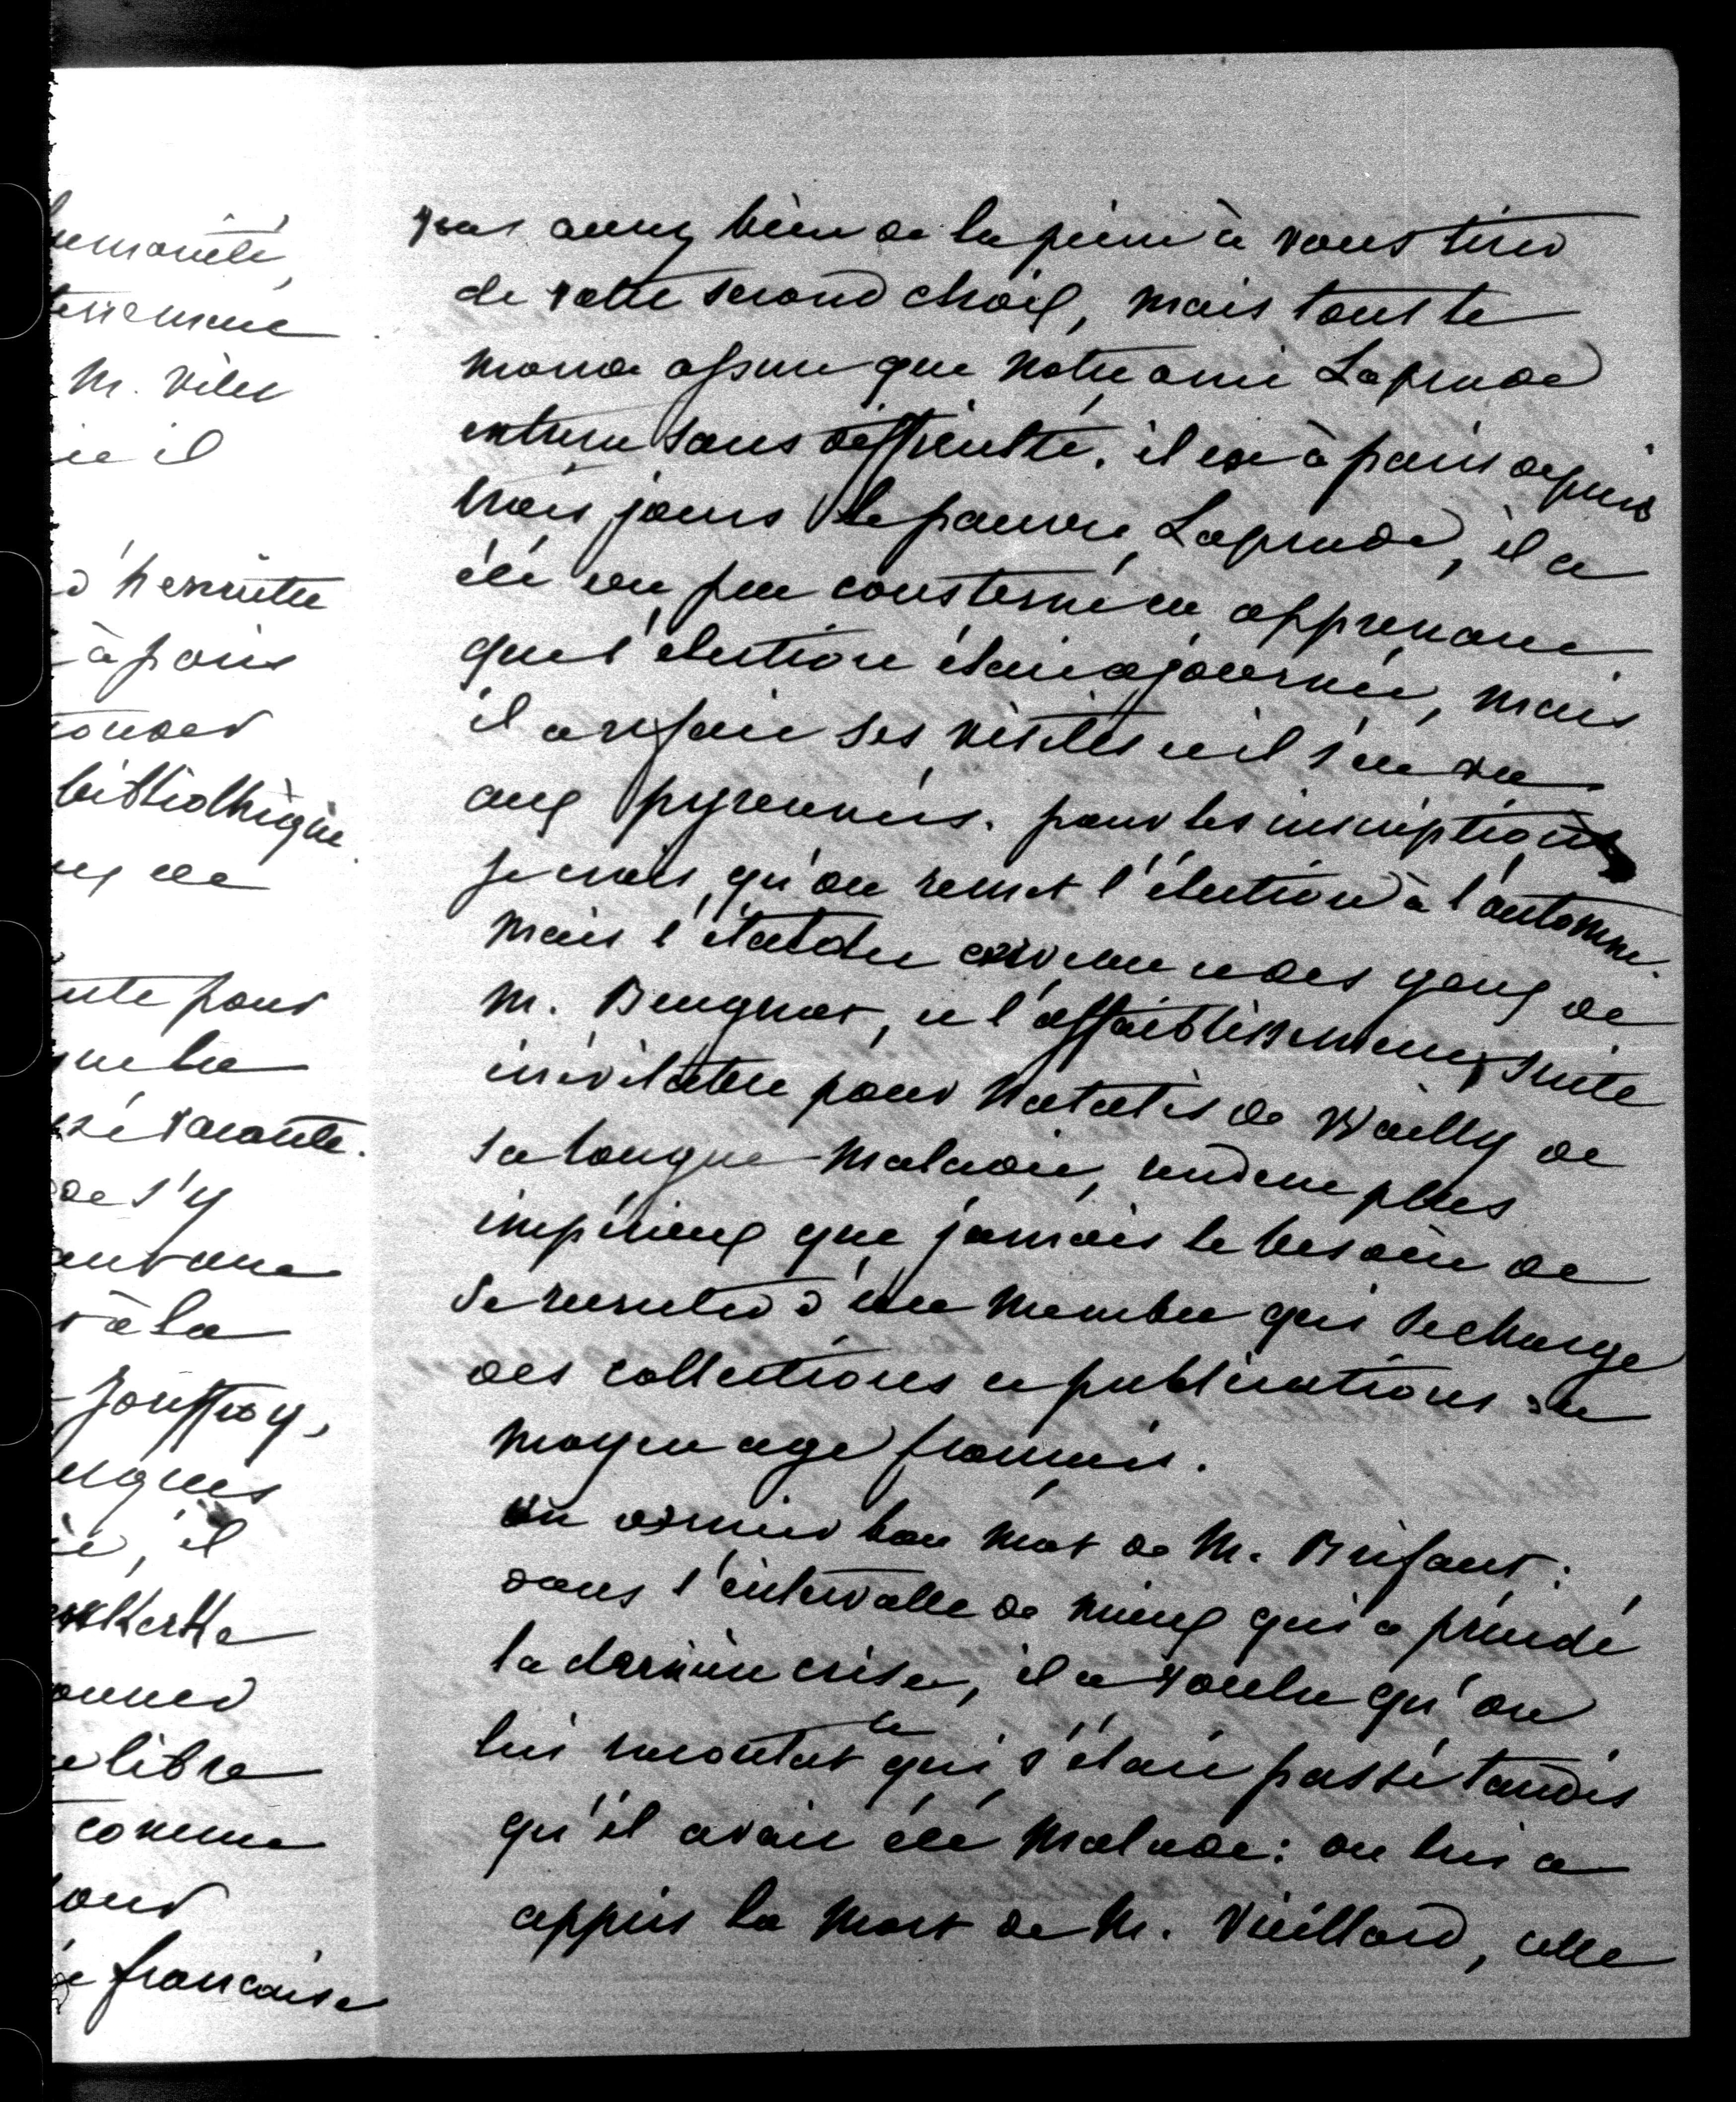 umanité,
terrement
M. Vitet
ie il
d'henriette
à paris
onder
bibliothèque
ux de
ute pour
que la
sé vacante.
de s'y
autant
r à la
Jouffroy,
ugues
è, il
erkerke
onner
e libre
comme
our
ie francaise
vous aurez bien de la peine à vous tirer
de votre second choix, mais tout le
monde assure que notre ami Laprade
entrera sans difficulté. il est à paris depuis
trois jours le pauvre Laprade, il a
été un peu consterné en apprenant
que l'élection était ajournée, mais
il a refait ses visites et il s'en va
aux pyrennées. pour les inscriptions
je crois qu'on remet l'élection à l'automne.
mais l'état du cerveau et des yeux de
M. Beugnot, et l'affaiblissement, suite
inévitable pour Natalis de Wailly de
sa longue maladie, rendent plus
impérieux que jamais le besoin de
se recruter d'un membre qui se charge
des collections et publications du
moyen age français.
un dernier bon mot de M. Brifaut :
dans l'intervalle de mieux qui a précédé
la dernière crise, il a voulu qu'on
lui racontat ce qui s'était passé tandis
qu'il avait été malade : on lui a
appris la mort de M. Vieillard, celle